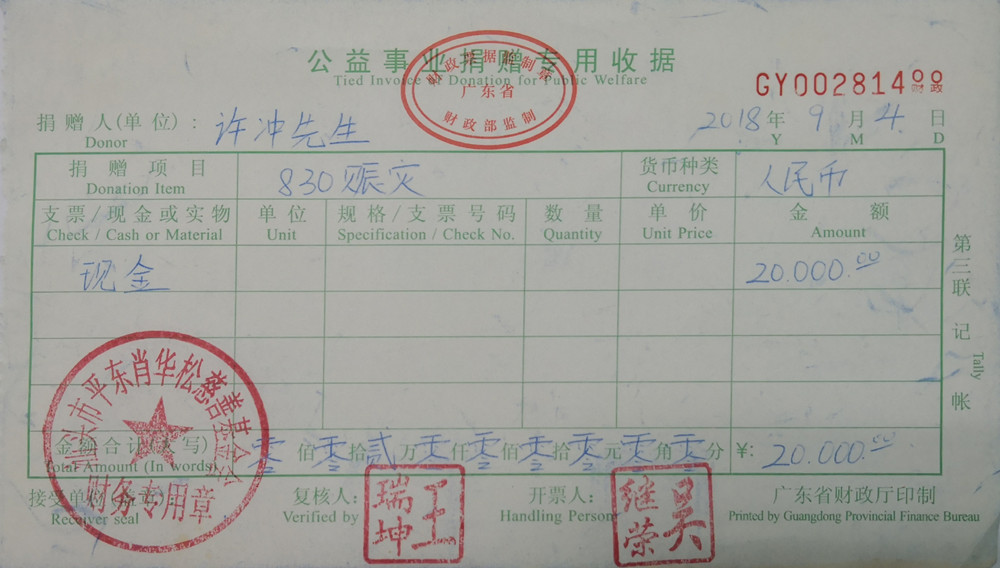 公益事业捐赠专用收据
Tied Invoice of Donation for Public Welfare
广东省
财政部监制
GY00281400
财政
捐赠人(单位): 许冲先生 2018年 9月 4日
Donor Y M D
捐赠项目 830赈灾 货币种类 人民币
Donation Item Currency
支票/现金或实物 单位 规格/支票号码 数量 单价 金额
Check / Cash or Material Unit Specification / Check No. Quantity Unit Price Amount
现金 20.000.00
第三联 记帐
Tally
金额合计(大写) 零佰零拾贰万零仟零佰零拾零元零角零分 ¥: 20.000.00
Total Amount (In words)
平东肖华松慈善基金会
财务专用章
接受单位(盖章): 复核人: 王瑞坤 开票人: 吴继荣 广东省财政厅印制
Receiver seal Verified by Handling Person Printed by Guangdong Provincial Finance Bureau